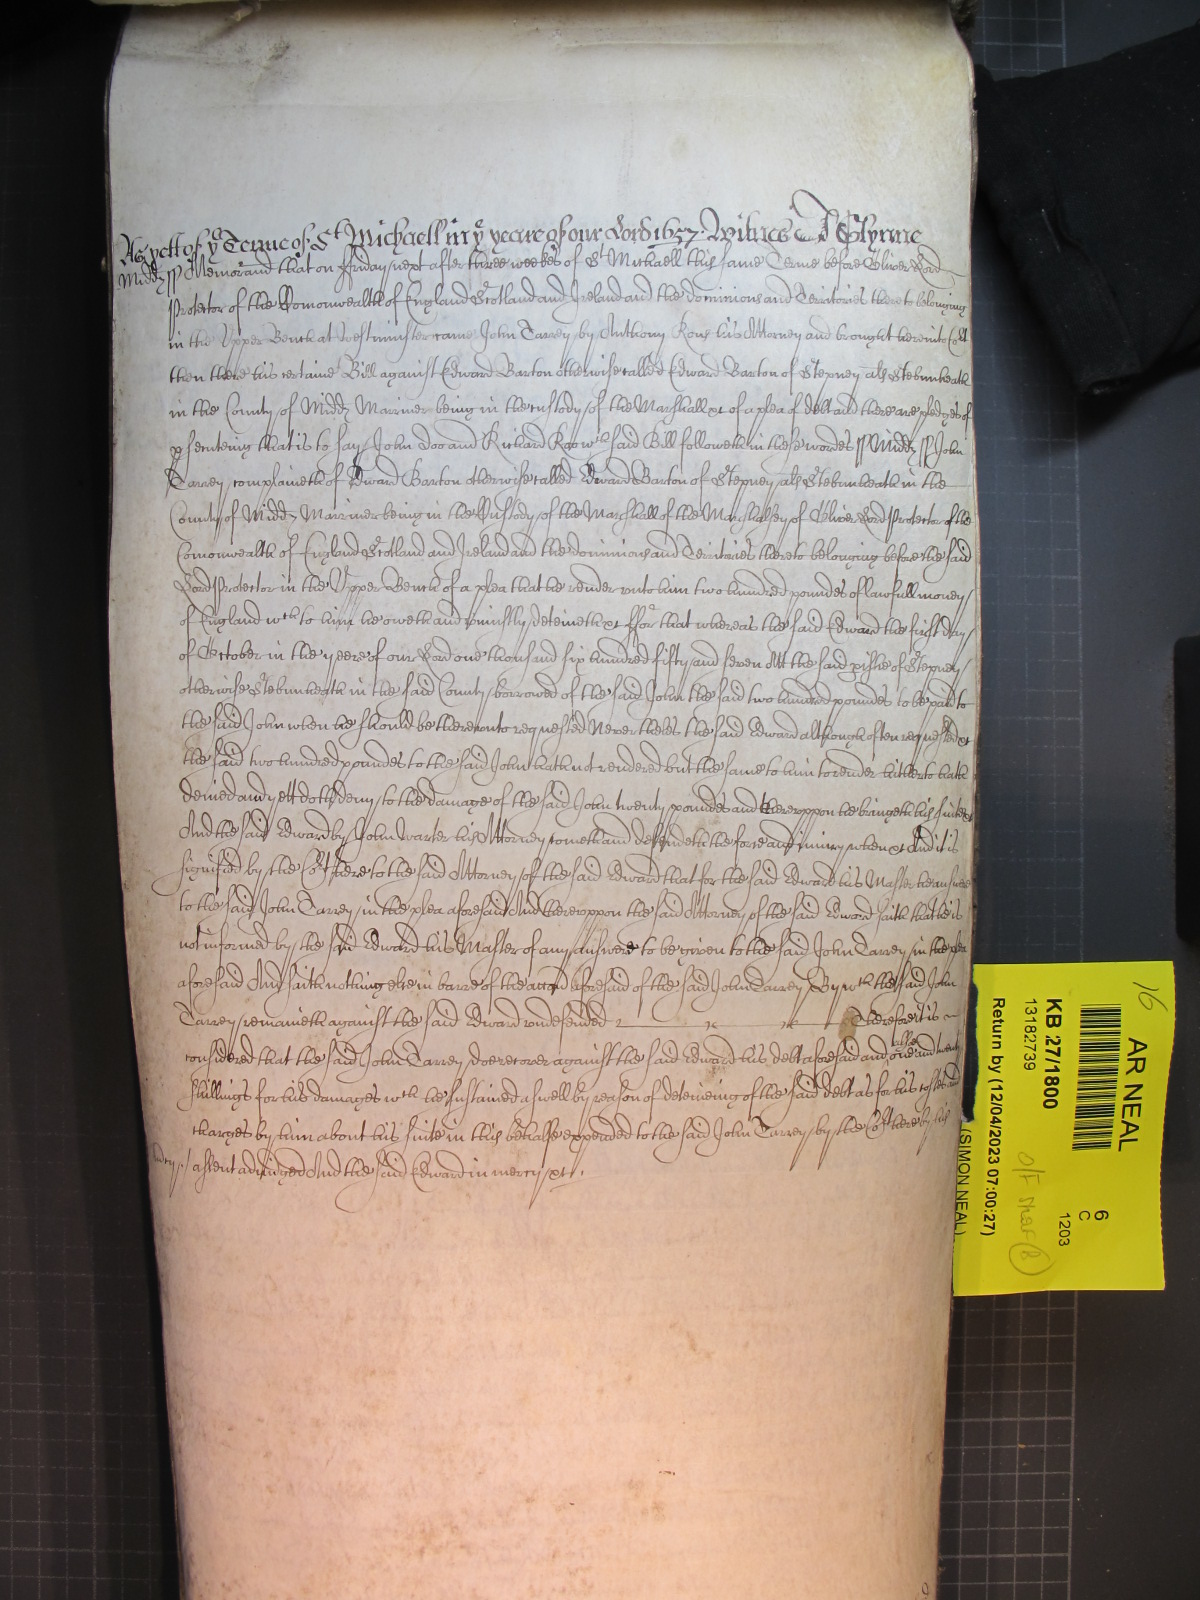 As yett of ye Terme of St Michaell in ye yeare of our Lord 1657: Witnes J Glynne
Midds ss Memorand that on Friday next after three weekes of St Michaell this same Terme before Oliver Lord
Protector of the Comonwealth of England Scotland and Ireland and the dominions and Territories thereto belonging
in the Upper Bench at Westminster came John Tarrey by Anthony Rous his Attorney and brought here into Cort
then there his certaine Bill against Edward Barton otherwise called Edward Barton of Stepney als Stebunheath
in the County of Midds Mariner being in the custody of the Marshall &c of a plea of debt and there are pledges of
psecuteing that is to say John Doo and Richard Roo wch said Bill followeth in these wordes ss Midds ss John
Tarrey complaineth of Edward Barton otherwise called Edward Barton of Stepney als Stebunheath in the
County of Midds Marriner being in the Custody of the Marshall of the Marshalsey of Oliver Lord Protector of the
Comonwealth of England Scotland and Ireland and the dominions and Territories thereto belonging before the said
Lord Protector in the Upper Bench of a plea that he render unto him two hundred poundes of lawfull money
of England wch to him he oweth and uniustly deteineth &c ffor that whereas the said Edward the first day
of October in the yeere of our Lord one thousand six hundred fifty and seven Att the said pishe of Stepney
otherwise Stebunheath in the said County borrowed of the said John the said two hundred poundes to be paid to
the said John when he should be thereunto requested Neverthelės the said Edward although often requested &c
the said two hundred poundes to the said John hath not rendered but the same to him to render hitherto hath
denied and yett doth deny to the damage of the said John twenty poundes and thereuppon he bringeth his suite &c
And the said Edward by John Warter his Attorney cometh and defendeth the force and iniury when &c And it is
signified by the Cort here to the said Attorney of the said Edward that for the said Edward his Master he answere
to the said John Tarrey in the plea aforesaid And thereuppon the said Attorney of the said Edward saith that he is
not informed by the said Edward his Master of any answere to be given to the said John Tarrey in the plea
aforesaid And saith nothing else in barre of the accon aforesaid of the said John Tarrey By wch the said John
Tarrey remaineth against the said Edward undefended Therefore it is
considered that the said John Tarrey doe recover against the said Edward his debt aforesaid and alsoe one and twenty
shillings for his damages wch he sustained aswell by reason of deteineing of the said debt as for his costes and
charges by him about his suite in this behalfe expended to the said John Tarrey by the Cort here by his
assent adiudged And the said Edward in mercy &c.
16
AR NEAL
6
C
1203
KB 27/1800
13182739
O/F Shelf (8)
Return by (12/04/2023 07:00:27)
(SIMON NEAL)